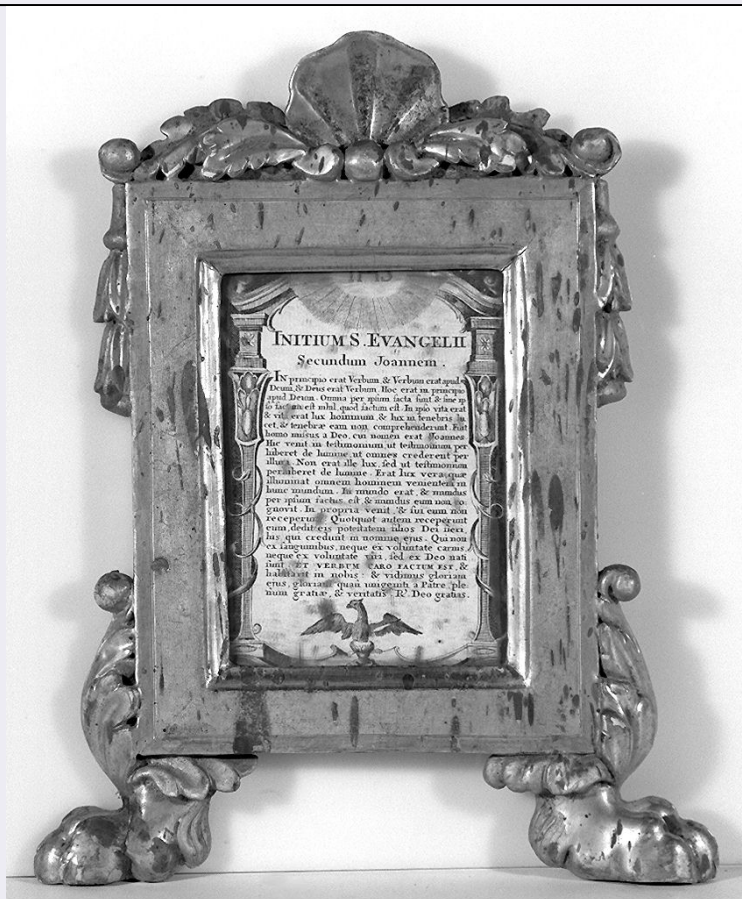 IHS
INITIUM S. EVANGELII
Secundum Joannem.
IN principio erat Verbum, & Verbum erat apud
Deum, & Deus erat Verbum. Hoc erat in principio
apud Deum. Omnia per ipsum facta sunt & sine ip
so factum est nihil, quod factum est. In ipso vita erat
& vita erat lux hominum, & lux in tenebris lu
cet, & tenebræ eam non comprehenderunt. Fuit
homo missus a Deo, cui nomen erat Joannes
Hic venit in testimonium ut testimonium per
hiberet de lumine, ut omnes crederent per
illum. Non erat ille lux, sed ut testimonium
perhiberet de lumine. Erat lux vera, quæ
illuminat omnem hominem venientem in
hunc mundum. In mundo erat, & mundus
per ipsum factus est, & mundus eum non co
gnovit. In propria venit, & sui eum non
receperunt. Quotquot autem receperunt
eum, dedit eis potestatem filios Dei fieri,
his qui credunt in nomine ejus. Qui non
ex sanguinibus, neque ex voluntate carnis
neque ex voluntate viri, sed ex Deo nati
sunt ET VERBUM CARO FACTUM EST, &
habitavit in nobis: & vidimus gloriam
ejus, gloriam quasi unigeniti a Patre ple
num gratiæ, & veritatis. R. Deo gratias.